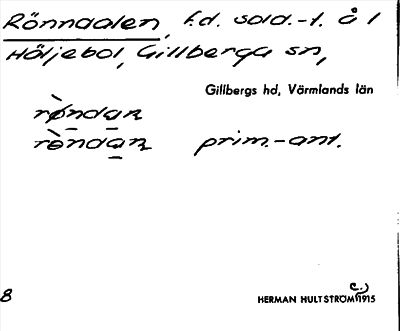 Rönndalen, f.d. sold.-t. å 1
Höljebol, Gillberga sn,
Gillbergs hd, Värmlands län
prim.-ant.
8
HERMAN HULTSTRÖM 1915